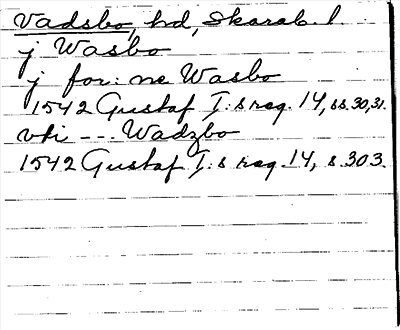 Vadsbo, hd, Skarab. l.
j Wasbo
j for:ne Wasbo
1542 Gustaf I:s reg. 14, ss. 30, 31.
vti --- Wadzbo
1542 Gustaf I:s reg. 14, s. 303.